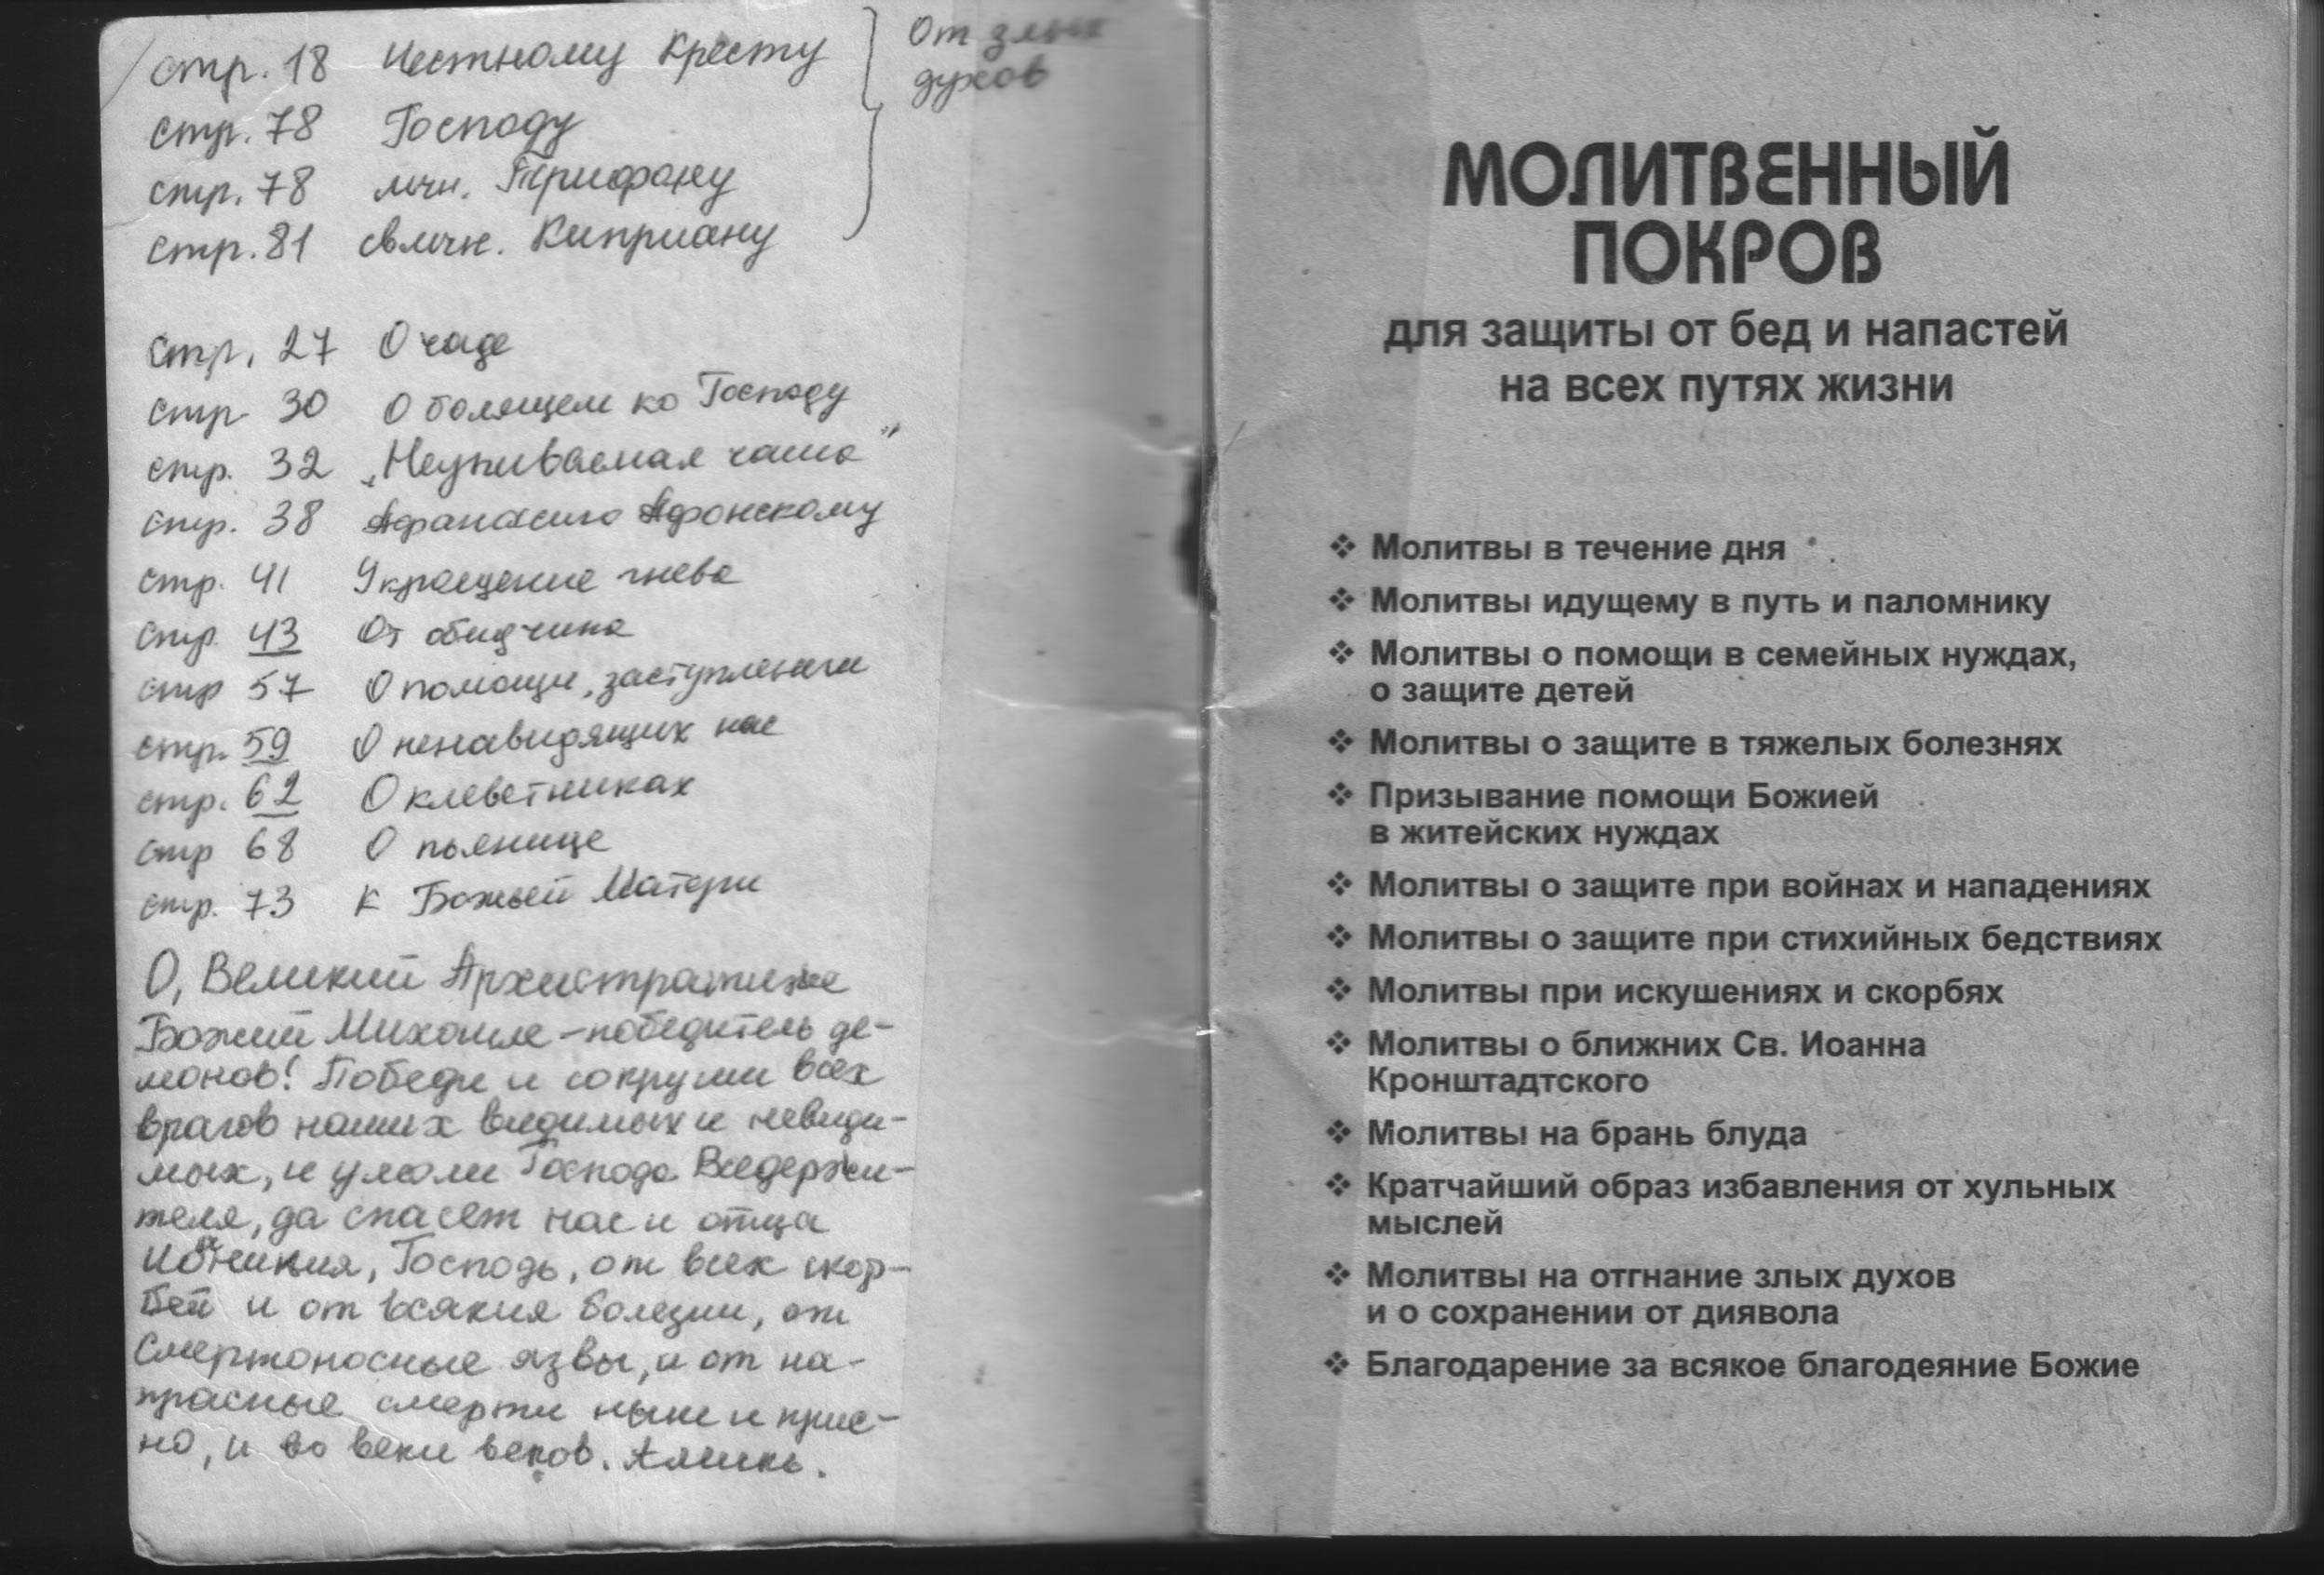 стр. 18 Честному Кресту
От злых
духов
стр. 78 Господу
стр. 78 мчн. Трифону
стр. 81 свмчн. Киприану
стр. 27 О чаде
стр 30 О болящем ко Господу
стр. 32 „Неупиваемая чаша"
стр. 38 Афанасию Афонскому
стр. 41 Укрощение гнева
стр. 43 От обидчика
стр 57 О помощи, заступлении
стр. 59 О ненавидящих нас
стр. 62 О клеветниках
стр 68 О пьянице
стр. 73 К Божьей Матери
О, Великий Архистратиже
Божий Михаиле – победитель де-
монов! Победи и сокруши всех
врагов наших видимых и невиди-
мых, и умоли Господа Вседержи-
теля, да спасет нас и отца
Господь, от всех скор-
бей и от всякия болезни, от
смертоносные язвы, и от на-
прасные смерти ныне и прис-
но, и во веки веков. Аминь.
МОЛИТВЕННЫЙ
ПОКРОВ
для защиты от бед и напастей
на всех путях жизни
❖ Молитвы в течение дня
❖ Молитвы идущему в путь и паломнику
❖ Молитвы о помощи в семейных нуждах,
о защите детей
❖ Молитвы о защите в тяжелых болезнях
❖ Призывание помощи Божией
в житейских нуждах
❖ Молитвы о защите при войнах и нападениях
❖ Молитвы о защите при стихийных бедствиях
❖ Молитвы при искушениях и скорбях
❖ Молитвы о ближних Св. Иоанна
Кронштадтского
❖ Молитвы на брань блуда
❖ Кратчайший образ избавления от хульных
мыслей
❖ Молитвы на отгнание злых духов
и о сохранении от диявола
❖ Благодарение за всякое благодеяние Божие